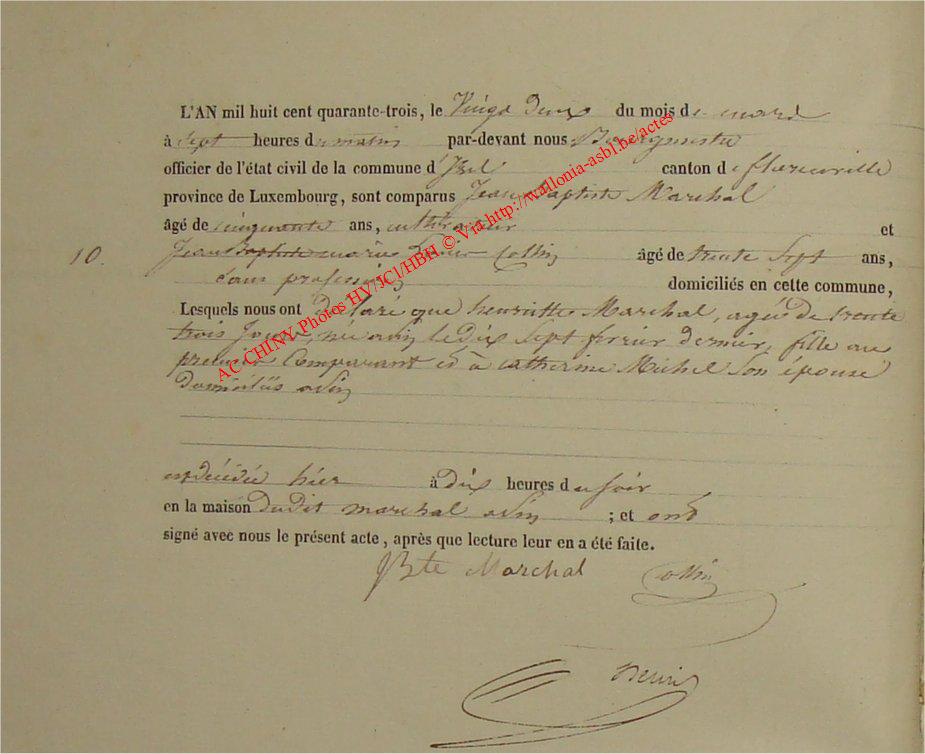 L'AN mil huit cent quarante-trois, le Vingt deux du mois de mars
à sept heures du matin par-devant nous Bourgmestre
officier de l'état civil de la commune d'Izel canton de florenville
province de Luxembourg, sont comparus Jean Baptiste Marchal
âgé de cinquante ans, cultivateur et
10. Jean Baptiste Collin âgé de trente Sept ans,
Sans profession domiciliés en cette commune,
Lesquels nous ont déclaré que henriette Marchal, agée de trente
trois Jours, née le dix Sept fevrier dernier, fille au
premier Comparant et à catherine Michel Son épouse
Domiciliés
est décédée hier à dix heures du soir
en la maison dudit marchal ; et ont
signé avec nous le présent acte, après que lecture leur en a été faite.
JBte Marchal Collin
AC-CHINY Photos HV/JCl/HBH © Via http://wallonia-asbl.be/actes